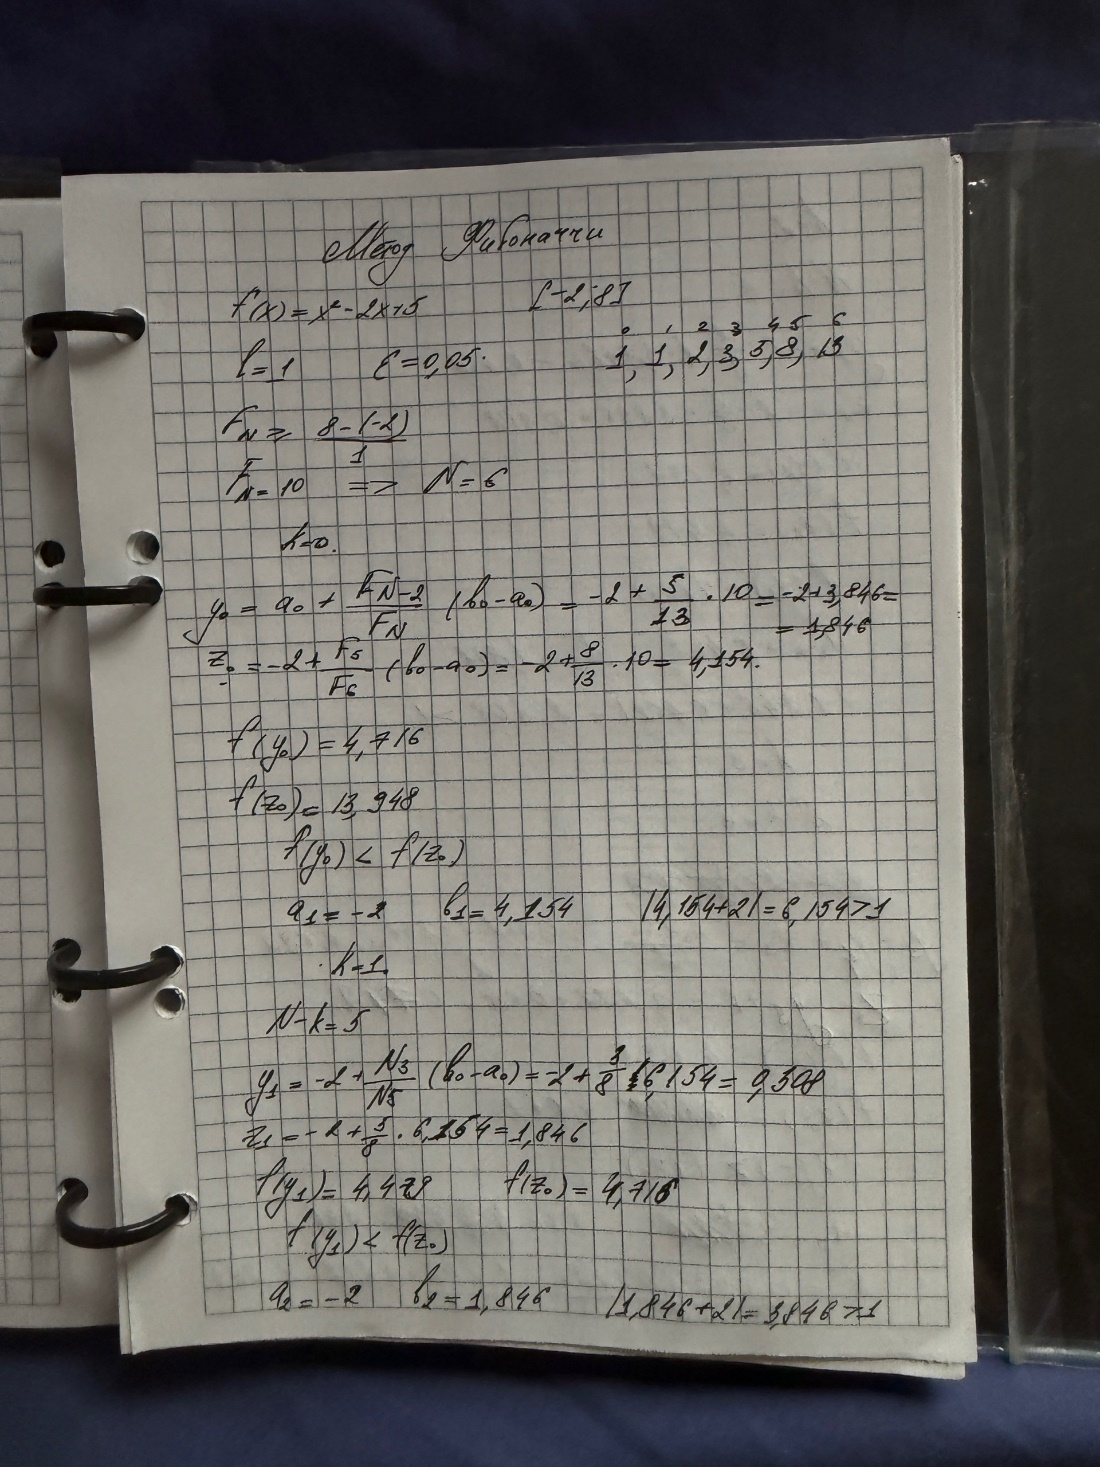 Метод Фибоначчи
f(x) = x² - 2x + 5 [-2; 8]
0 1 2 3 4 5 6
l = 1 ε = 0,05. 1, 1, 2, 3, 5, 8, 13
F_N ≥ (8 - (-2))/1
F_N = 10 => N = 6
k = 0.
y₀ = a₀ + F_{N-2}/F_N (b₀ - a₀) = -2 + 5/13 · 10 = -2 + 3,846 =
= 1,846
z₀ = -2 + F₅/F₆ (b₀ - a₀) = -2 + 8/13 · 10 = 4,154.
f(y₀) = 4,716
f(z₀) = 13,948
f(y₀) < f(z₀)
a₁ = -2 b₁ = 4,154 |4,154 + 2| = 6,154 > 1
k = 1.
N - k = 5
y₁ = -2 + N₃/N₅ (b₀ - a₀) = -2 + 3/8 · 6,154 = 0,308
z₁ = -2 + 5/8 · 6,154 = 1,846
f(y₁) = 4,479 f(z₀) = 4,716
f(y₁) < f(z₀)
a₂ = -2 b₂ = 1,846 |1,846 + 2| = 3,846 > 1